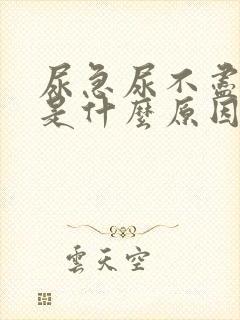 尿急尿不盡
是什麼原因
雲天空